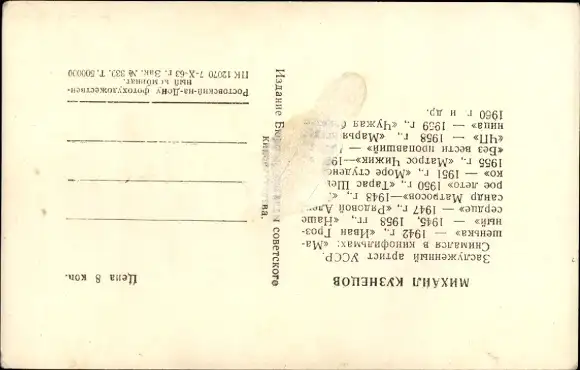 МИХАИЛ КУЗНЕЦОВ
Заслуженный артист УССР.
Снимался в кинофильмах: «Ма-
шенька» — 1942 г., «Иван Гроз-
ный» — 1945, 1958 гг., «Наше
сердце» — 1947 г., «Рядовой Алек-
сандр Матросов»—1948 г.,
рое лето» 1950 г., «Тарас Шев
ко» — 1951 г., «Море студеное
1955 г., «Матрос Чижик»—19
«Без вести пропавший» —
«ЧП» — 1958 г., «Марья
ница» — 1959 г., «Чужая
1960 г и др.
Издание Бюро советского
киноискусства.
Цена 8 коп.
Ростовский-на-Дону фотохудожествен-
ный комбинат.
ПК 12070 7-X-63 г Зак. № 339. Т. 500000